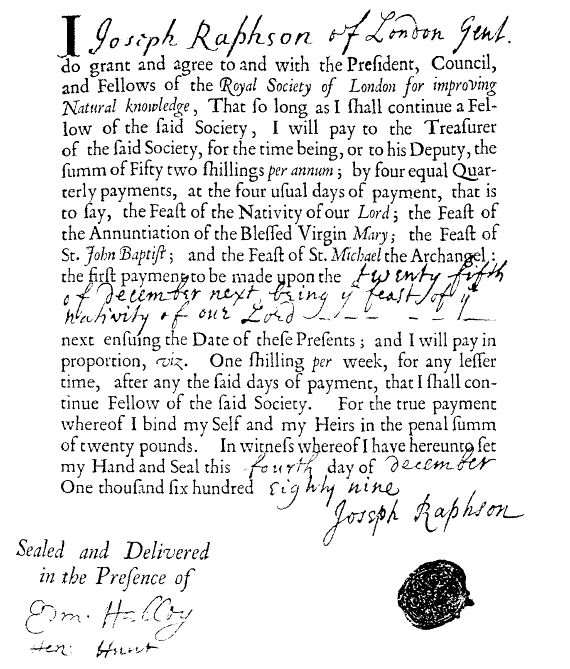 I Joseph Raphson of London Gent.
do grant and agree to and with the Preſident, Council,
and Fellows of the Royal Society of London for improving
Natural knowledge, That ſo long as I ſhall continue a Fel-
low of the ſaid Society, I will pay to the Treaſurer
of the ſaid Society, for the time being, or to his Deputy, the
ſumm of Fifty two ſhillings per annum; by four equal Quar-
terly payments, at the four uſual days of payment, that is
to ſay, the Feaſt of the Nativity of our Lord; the Feaſt of
the Annuntiation of the Bleſſed Virgin Mary; the Feaſt of
St. John Baptiſt; and the Feaſt of St. Michael the Archangel:
the firſt payment to be made upon the twenty fifth
of december next, being yͤ feast of yͤ
nativity of our Lord
next enſuing the Date of theſe Preſents; and I will pay in
proportion, viz. One ſhilling per week, for any leſſer
time, after any the ſaid days of payment, that I ſhall con-
tinue Fellow of the ſaid Society. For the true payment
whereof I bind my Self and my Heirs in the penal ſumm
of twenty pounds. In witneſs whereof I have hereunto ſet
my Hand and Seal this fourth day of december
One thouſand ſix hundred Eighty nine
Joseph Raphson
Sealed and Delivered
in the Preſence of
Edm. Halley
Hen: Hunt